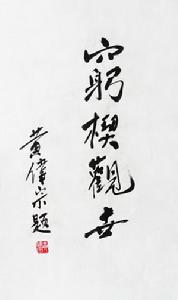 窮楔觀世
黃偉宗題